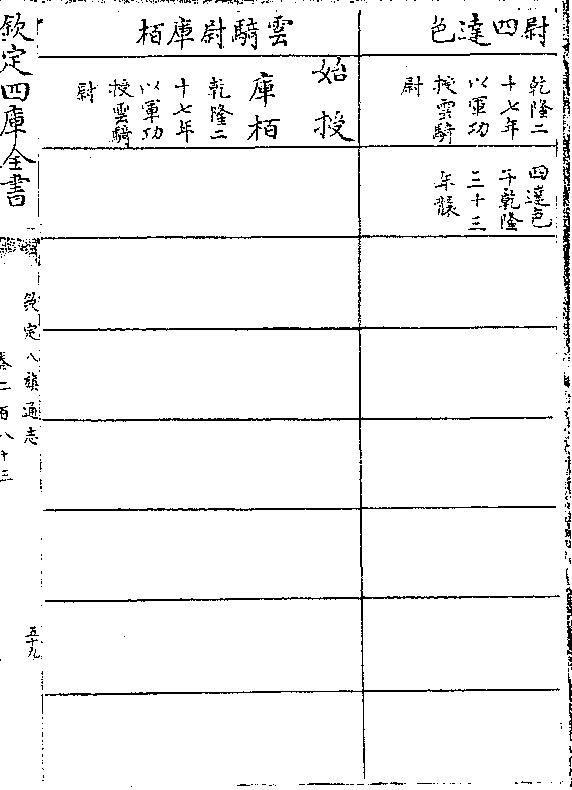 尉四達色
乾隆二
十七年
以軍功
授雲騎
尉
四達色
子乾隆
三十三
年襲
雲騎尉庫栢
始授
庫栢
乾隆二
十七年
以軍功
授雲騎
尉
欽定四庫全書
欽定八旗通志
卷二百八十三
五十九